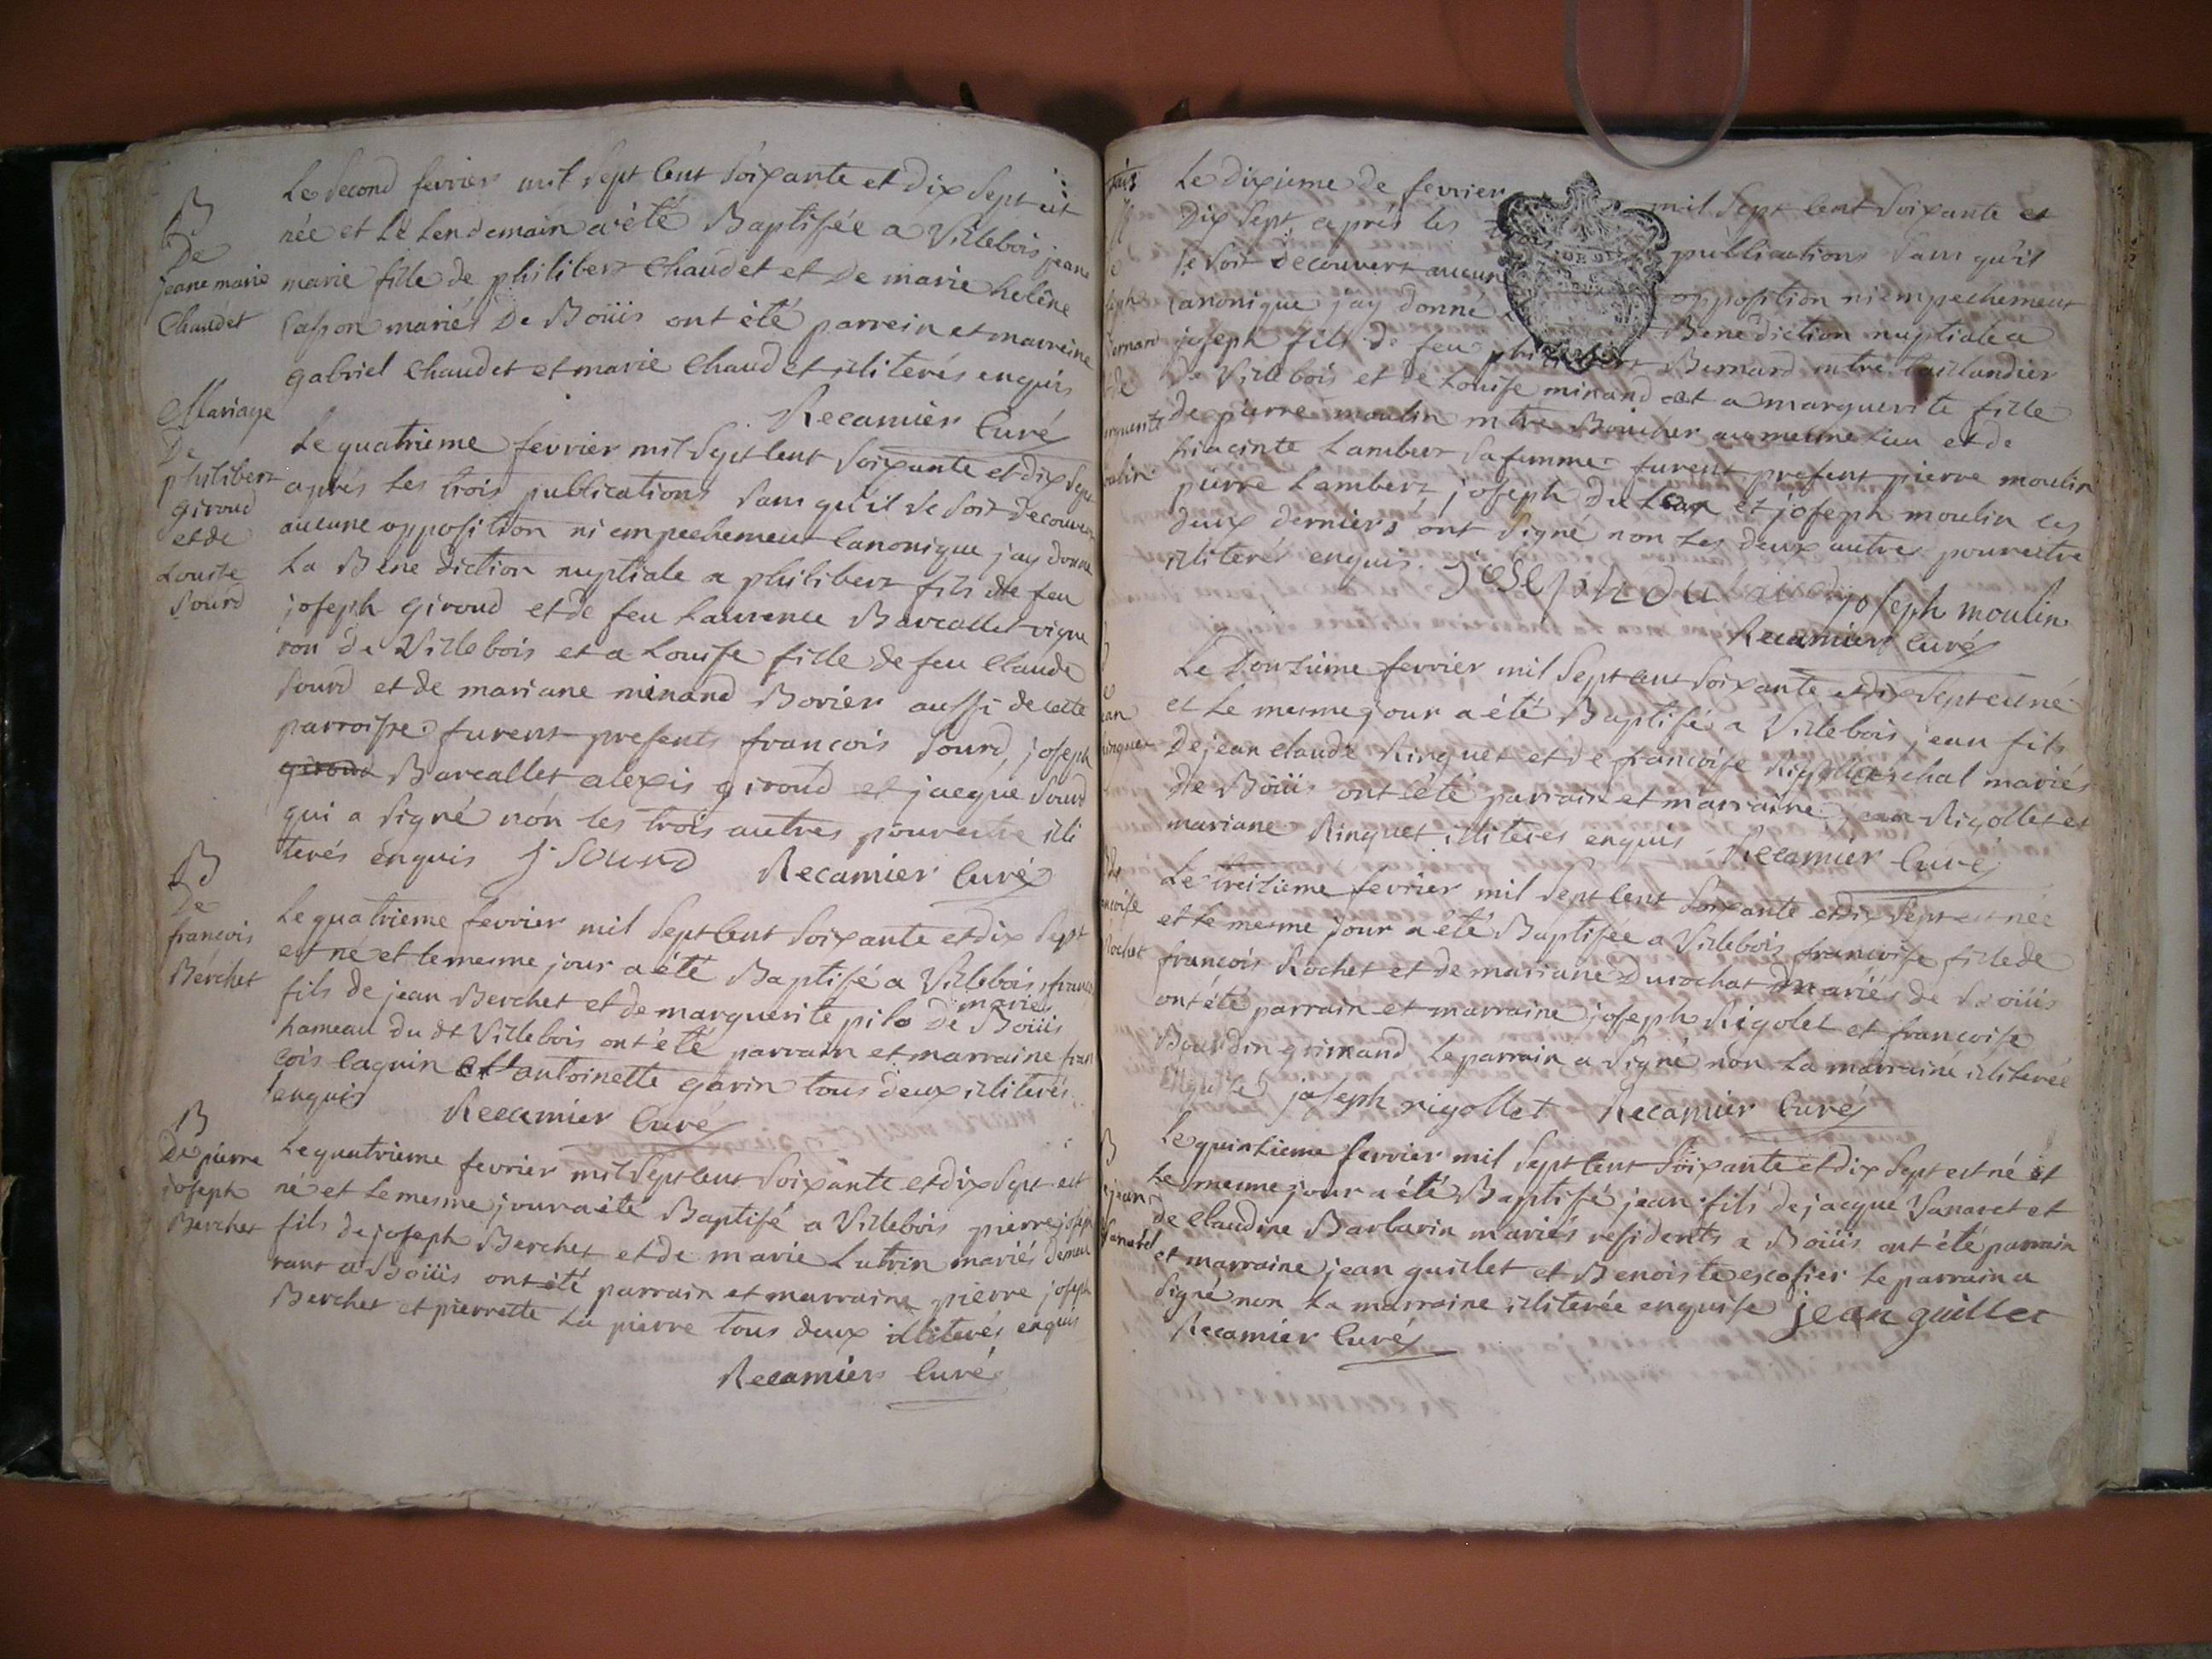 B
De
jeane marie
Chaudet
Le second fevrier mil sept cent soixante et dix sept est
née et le lendemain a été Baptisée a Villebois jeane
marie fille de philibert Chaudet et De marie helêne
Casson mariés De Boüis ont été parrein et marreine
gabriel Chaudet et marie Chaudet illiterés enquis
Recamier Curé
Mariage
De
philibert
giroud
et de
Louise
sourd
Le quatrieme fevrier mil sept cent soixante et dix sept
aprés les trois publications sans qu'il se soit decouvert
aucune opposition ni empechement canonique j'ay donné
la Bene diction nuptiale a philibert fils de feu
joseph giroud et de feu Laurence Barcallet vigne
ron de Villebois et a Louise fille de feu Claude
sourd et de mariane minand Bovier aussi de cette
parroisse furent presents francois sourd, joseph
giroud Barcallet alexis giroud et jacque sourd
qui a signé nón les trois autres pour estre illi
terés enquis j. sourd Recamier Curé
B
De
francois
Berchet
Le quatrieme fevrier mil sept cent soixante et dix sept
est né et le mesme jour a été Baptisé a Villebois francois
fils de jean Berchet et de marguerite pilo mariés De Boüis
hameau du dt Villebois ont été parrain et marraine fran
cois caquin et antoinette garin tous deux illiterés
enquis Recamier Curé
B
De pierre
joseph
Berchet
Le quatrieme fevrier mil sept cent soixante et dix sept est
né et le mesme jour a été Baptisé a Villebois pierre joseph
fils de joseph Berchet et de marie Lutrin mariés demeu
rant a Boüis ont été parrain et marraine pierre joseph
Berchet et pierrette La pierre tous deux illiterés enquis
Recamier Curé
Le dixieme de fevrier mil sept cent soixante et
dix sept aprés les publications sans qu'il
se soit decouvert aucune opposition ni empechement
canonique j'ay donné Benediction nuptiale a
joseph fils de feu philibert Bernard mtre taillandier
de Villebois et de Louise minand et a marguerite fille
de pierre moulin mtre Boucher au mesme lieu et de
hiacinte Lambert sa femme furent present pierre moulin
pierre Lambert, joseph du et joseph moulin les
deux derniers ont signé non les deux autres pour estre
illiterés enquis. joseph
joseph moulin
Recamier curé
ean
inguet
Le Douzieme fevrier mil sept cent soixante et dix sept est né
et le mesme jour a été Baptisé a Villebois jean fils
De jean claude Ringuet et de francoise marechal mariés
de Boüis ont été parrain et marraine jean Rigollet et
mariane Ringuet illiterés enquis Recamier Curé
de
ancoise
Rochet
Le treizieme fevrier mil sept cent soixante et dix sept est née
et le mesme jour a été Baptisée a Villebois francoise fille de
francois Rochet et de mariane Durochat mariés de Boüis
ont été parrain et marraine joseph Rigolet et francoise
Bourdin grinand le parrain a signé non la marraine illiterée
enquise joseph rigollet Recamier Curé
B
jean
Vanarel
Le quinzieme fevrier mil sept cent soixante et dix sept est né et
le mesme jour a été Baptisé jean fils de jacque Vanaret et
de Claudine Barbarin mariés residents a Boüis ont été parrain
et marraine jean guillet et Benoiste escofier le parrain a
signé non la marraine illiterée enquise jean guillet
Recamier Curé